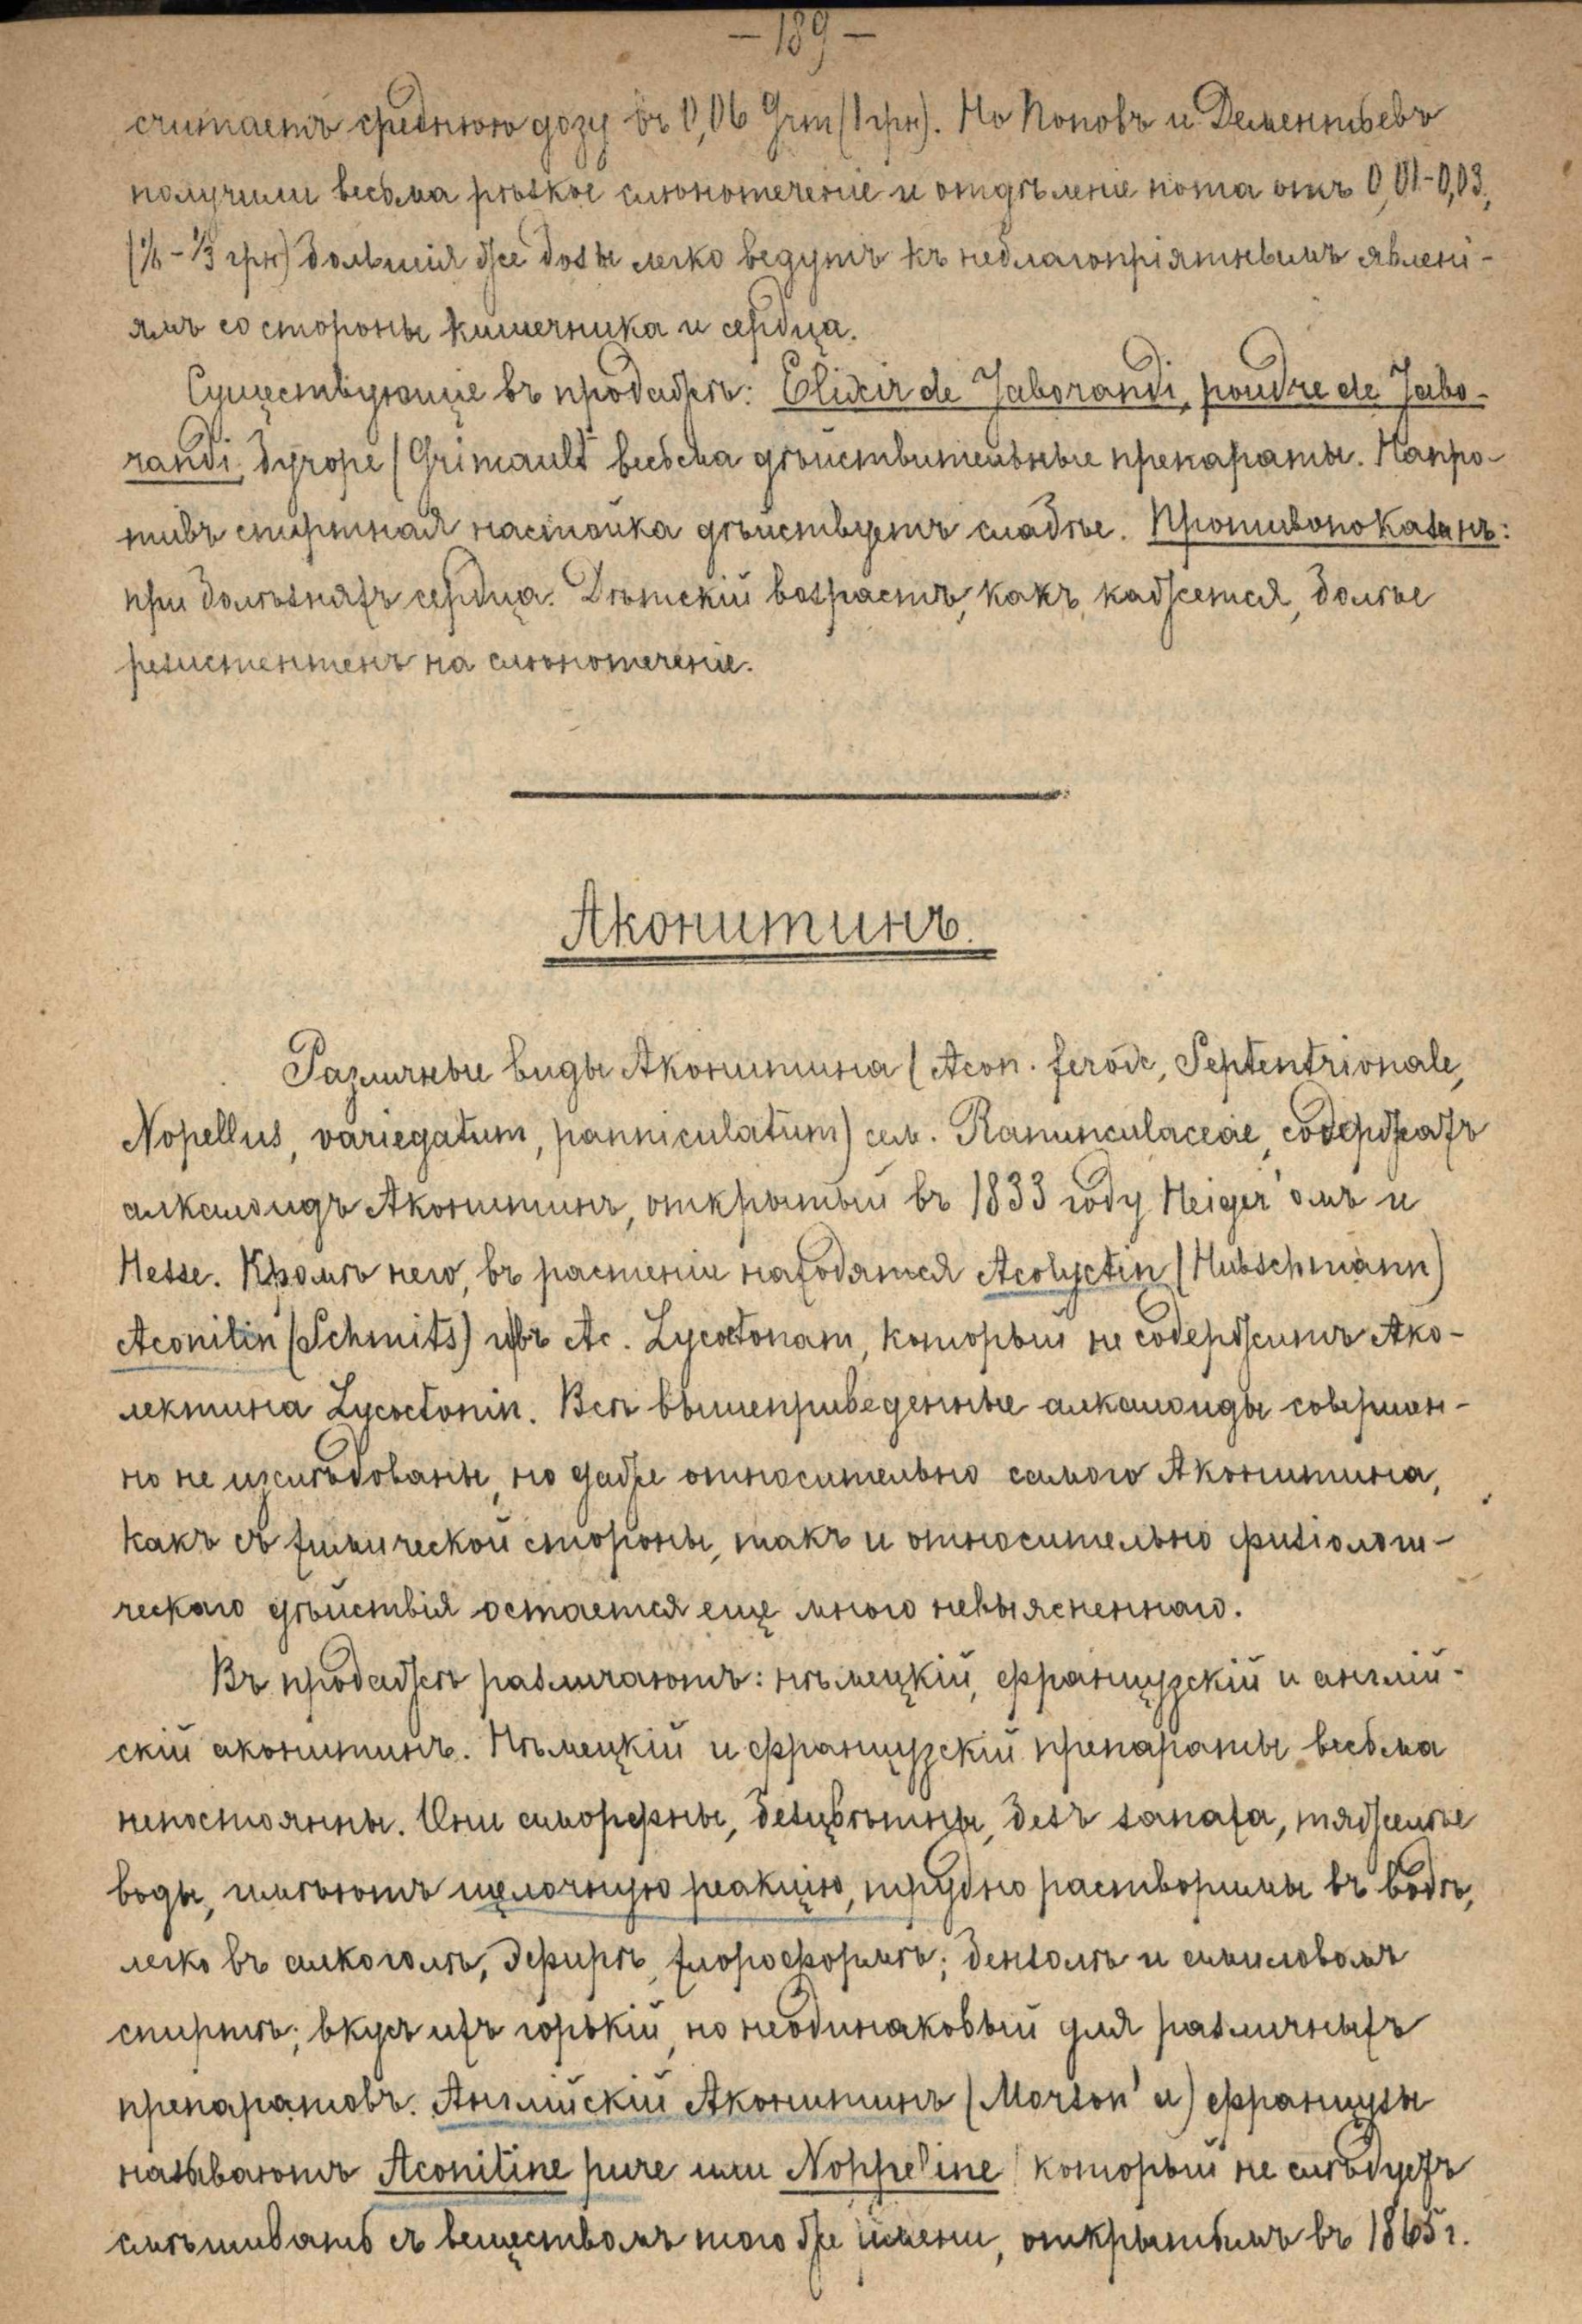 — 189 —
считаетъ среднюю дозу въ 0,06 Grm (1 грн). Но Поповъ и Дементьевъ
получили весьма рѣзкое слюнотеченіе и отдѣленіе пота отъ 0,01–0,03,
(1/6 – 1/3 грн) большія же дозы легко ведутъ къ неблагопріятнымъ явлені-
ямъ со стороны кишечника и сердца.
Существующіе въ продажѣ: Elixir de Jaborandi, poudre de Jabo-
randi, (Grimault весьма дѣйствительные препараты. Напро-
тивъ спиртная настойка дѣйствуетъ слабѣе. Противопоказанъ:
при болѣзняхъ сердца. Дѣтскій возрастъ, какъ кажется, болѣе
резистентенъ на слюнотеченіе.
Аконитинъ.
Различные виды Аконитина (Acon. ferox, Septentrionale,
Nopellus, variegatum, panniculatum) сем. Ranunculaceae, содержатъ
алкалоидъ Аконитинъ, открытый въ 1833 году Heiger'омъ и
Hesse. Кромѣ него, въ растеніи находятся Acolyctin (Hubschmann)
Aconitin (Schmits) въ Ac. Lycoctonam, который не содержитъ Ако-
лектина Lycoctonin. Всѣ вышеприведенные алкалоиды совершен-
но не изслѣдованы, но даже относительно самого Аконитина,
какъ съ химической стороны, такъ и относительно физіологи-
ческаго дѣйствія остается еще много невыясненнаго.
Въ продажѣ различаютъ: нѣмецкій, французскій и англій-
скій аконитинъ. Нѣмецкій и французскій препараты весьма
непостоянны. Они аморфны, безцвѣтны, безъ запаха, тяжелѣе
воды, имѣютъ щелочную реакцію, трудно растворимы въ водѣ,
легко въ алкоголѣ, эфирѣ, хлороформѣ; бензолѣ и амиловомъ
спиртѣ; вкусъ ихъ горькій, но неодинаковый для различныхъ
препаратовъ. Англійскій Аконитинъ (Morson'а) французы
называютъ Aconitine pure или Noppeline который не слѣдуетъ
смѣшивать съ веществомъ того же имени, открытымъ въ 1865 г.